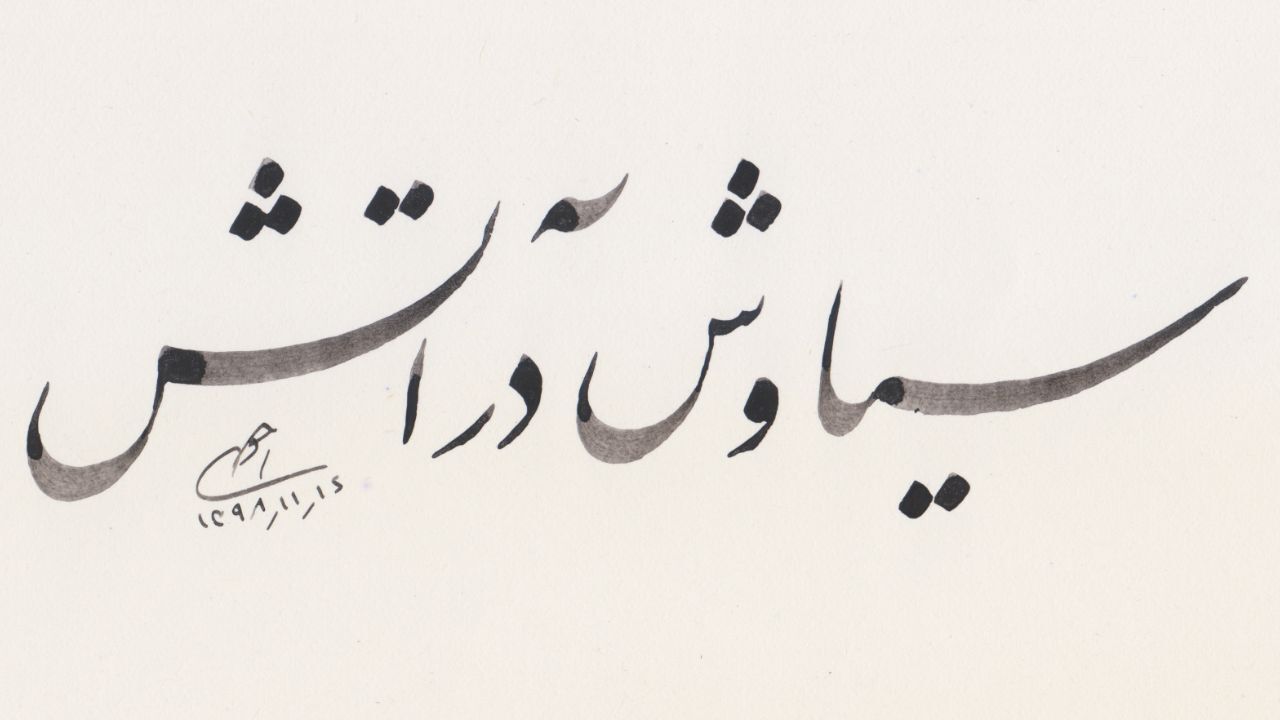 سیاوش در آتش
۱۳۹۸٫۱۱٫۱۴